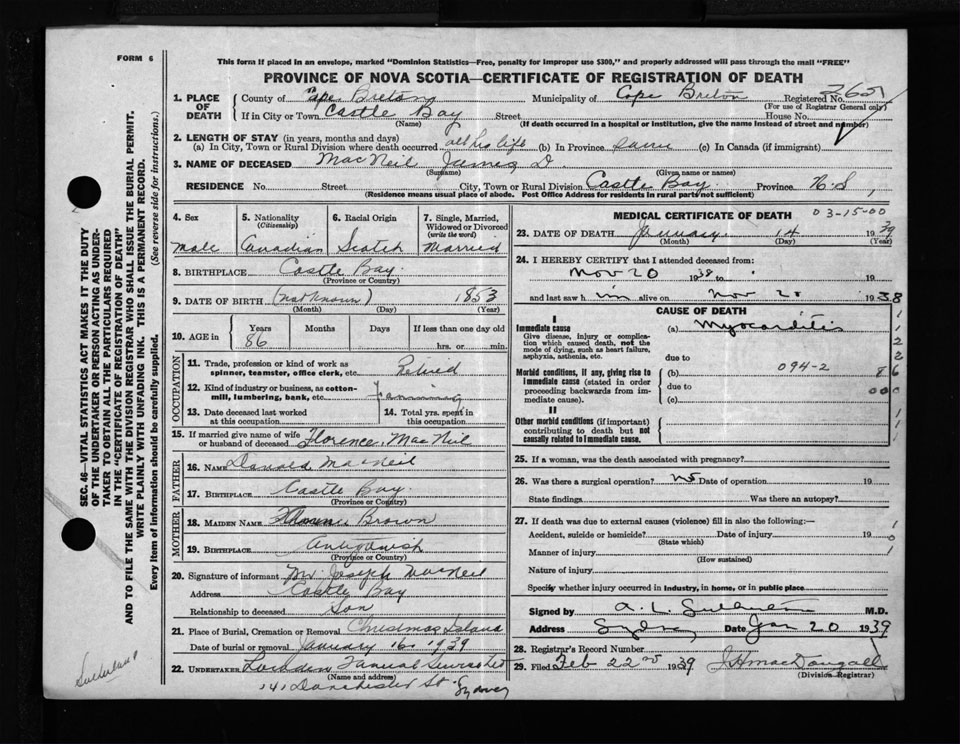 FORM 6
This form if placed in an envelope, marked "Dominion Statistics—Free, penalty for improper use $300," and properly addressed will pass through the mail "FREE"
PROVINCE OF NOVA SCOTIA—CERTIFICATE OF REGISTRATION OF DEATH
1. PLACE OF DEATH County of Cape Breton Municipality of Cape Breton Registered No. 2651
(For use of Registrar General only)
If in City or Town Castle Bay Street House No.
(Name) (If death occurred in a hospital or institution, give the name instead of street and number)
2. LENGTH OF STAY (in years, months and days)
(a) In City, Town or Rural Division where death occurred all his life (b) In Province same (c) In Canada (if immigrant)
3. NAME OF DECEASED MacNeil James D.
(Surname) (Given name or names)
RESIDENCE No. Street City, Town or Rural Division Castle Bay Province N.S,
(Residence means usual place of abode. Post Office Address for residents in rural parts not sufficient)
4. Sex Male
5. Nationality (Citizenship) Canadian
6. Racial Origin Scotch
7. Single, Married, Widowed or Divorced (write the word) Married
8. BIRTHPLACE Castle Bay.
(Province or Country)
9. DATE OF BIRTH (not known) 1853
(Month) (Day) (Year)
10. AGE in Years 86 Months Days If less than one day old hrs. or min.
OCCUPATION
11. Trade, profession or kind of work as spinner, teamster, office clerk, etc. Retired
12. Kind of industry or business, as cotton-mill, lumbering, bank, etc. Farming
13. Date deceased last worked at this occupation
14. Total yrs. spent in this occupation
15. If married give name of wife or husband of deceased Florence MacNeil
FATHER
16. NAME Donald MacNeil
17. BIRTHPLACE Castle Bay.
(Province or Country)
MOTHER
18. MAIDEN NAME Brown
19. BIRTHPLACE Antigonish
(Province or Country)
20. Signature of informant Mr. Joseph MacNeil
Address Castle Bay
Relationship to deceased Son
21. Place of Burial, Cremation or Removal Christmas Island
Date of burial or removal January 16 1939
22. UNDERTAKER
(Name and address)
141 Dorchester St. Sydney
MEDICAL CERTIFICATE OF DEATH 03-15-00
23. DATE OF DEATH January 14 1939
(Month) (Day) (Year)
24. I HEREBY CERTIFY that I attended deceased from:
Nov 20 1938 to 19
and last saw him alive on Nov 20 1938
CAUSE OF DEATH
I
Immediate cause
Give disease, injury or complication which caused death, not the mode of dying, such as heart failure, asphyxia, asthenia, etc.
(a) Myocarditis
due to
Morbid conditions, if any, giving rise to immediate cause (stated in order proceeding backwards from immediate cause).
(b) 094-2
due to
(c)
II
Other morbid conditions (if important) contributing to death but not causally related to immediate cause.
25. If a woman, was the death associated with pregnancy?
26. Was there a surgical operation? No Date of operation 19
State findings Was there an autopsy?
27. If death was due to external causes (violence) fill in also the following:—
Accident, suicide or homicide? Date of injury 19
(State which)
Manner of injury
(How sustained)
Nature of injury
Specify whether injury occurred in industry, in home, or in public place
Signed by A. L. M.D.
Address Sydney Date Jan 20 1939
28. Registrar's Record Number
29. Filed Feb 22nd 1939 J H MacDougall
(Division Registrar)
SEC. 46—VITAL STATISTICS ACT MAKES IT THE DUTY
OF THE UNDERTAKER OR PERSON ACTING AS UNDER-
TAKER TO OBTAIN ALL THE PARTICULARS REQUIRED
IN THE "CERTIFICATE OF REGISTRATION OF DEATH"
AND TO FILE THE SAME WITH THE DIVISION REGISTRAR WHO SHALL ISSUE THE BURIAL PERMIT.
WRITE PLAINLY WITH UNFADING INK. THIS IS A PERMANENT RECORD.
Every item of information should be carefully supplied. (See reverse side for instructions.)